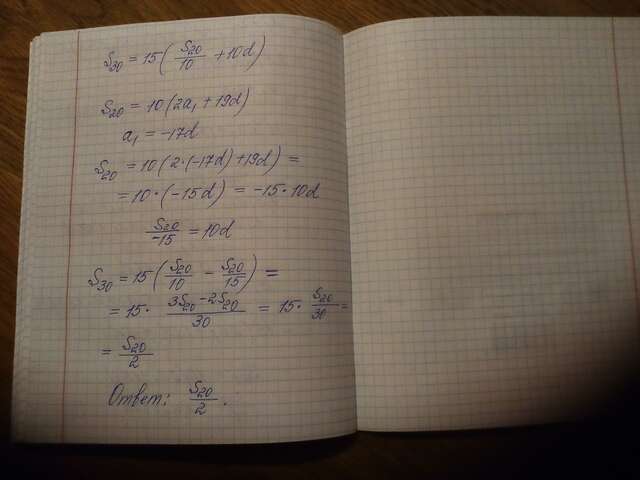 S₃₀ = 15(S₂₀/10 + 10d)
S₂₀ = 10(2a₁ + 19d)
a₁ = -17d
S₂₀ = 10(2·(-17d) + 19d) =
= 10·(-15d) = -15·10d
S₂₀/-15 = 10d
S₃₀ = 15(S₂₀/10 - S₂₀/15) =
= 15· 3S₂₀-2S₂₀/30 = 15· S₂₀/30 =
= S₂₀/2
Ответ: S₂₀/2.